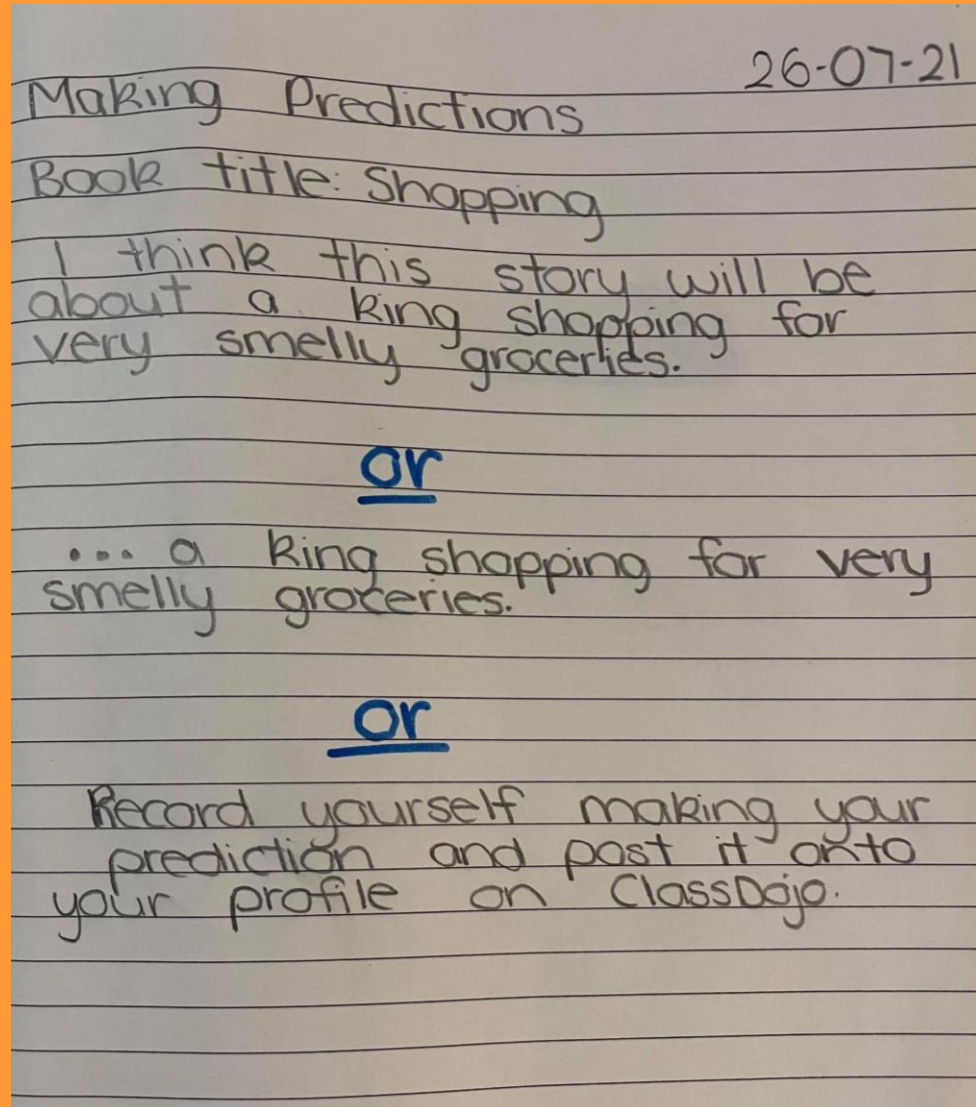 26-07-21
Making Predictions
Book title: Shopping
I think this story will be
about a king shopping for
very smelly groceries.
or
... a king shopping for very
smelly groceries.
or
Record yourself making your
prediction and post it onto
your profile on ClassDojo.